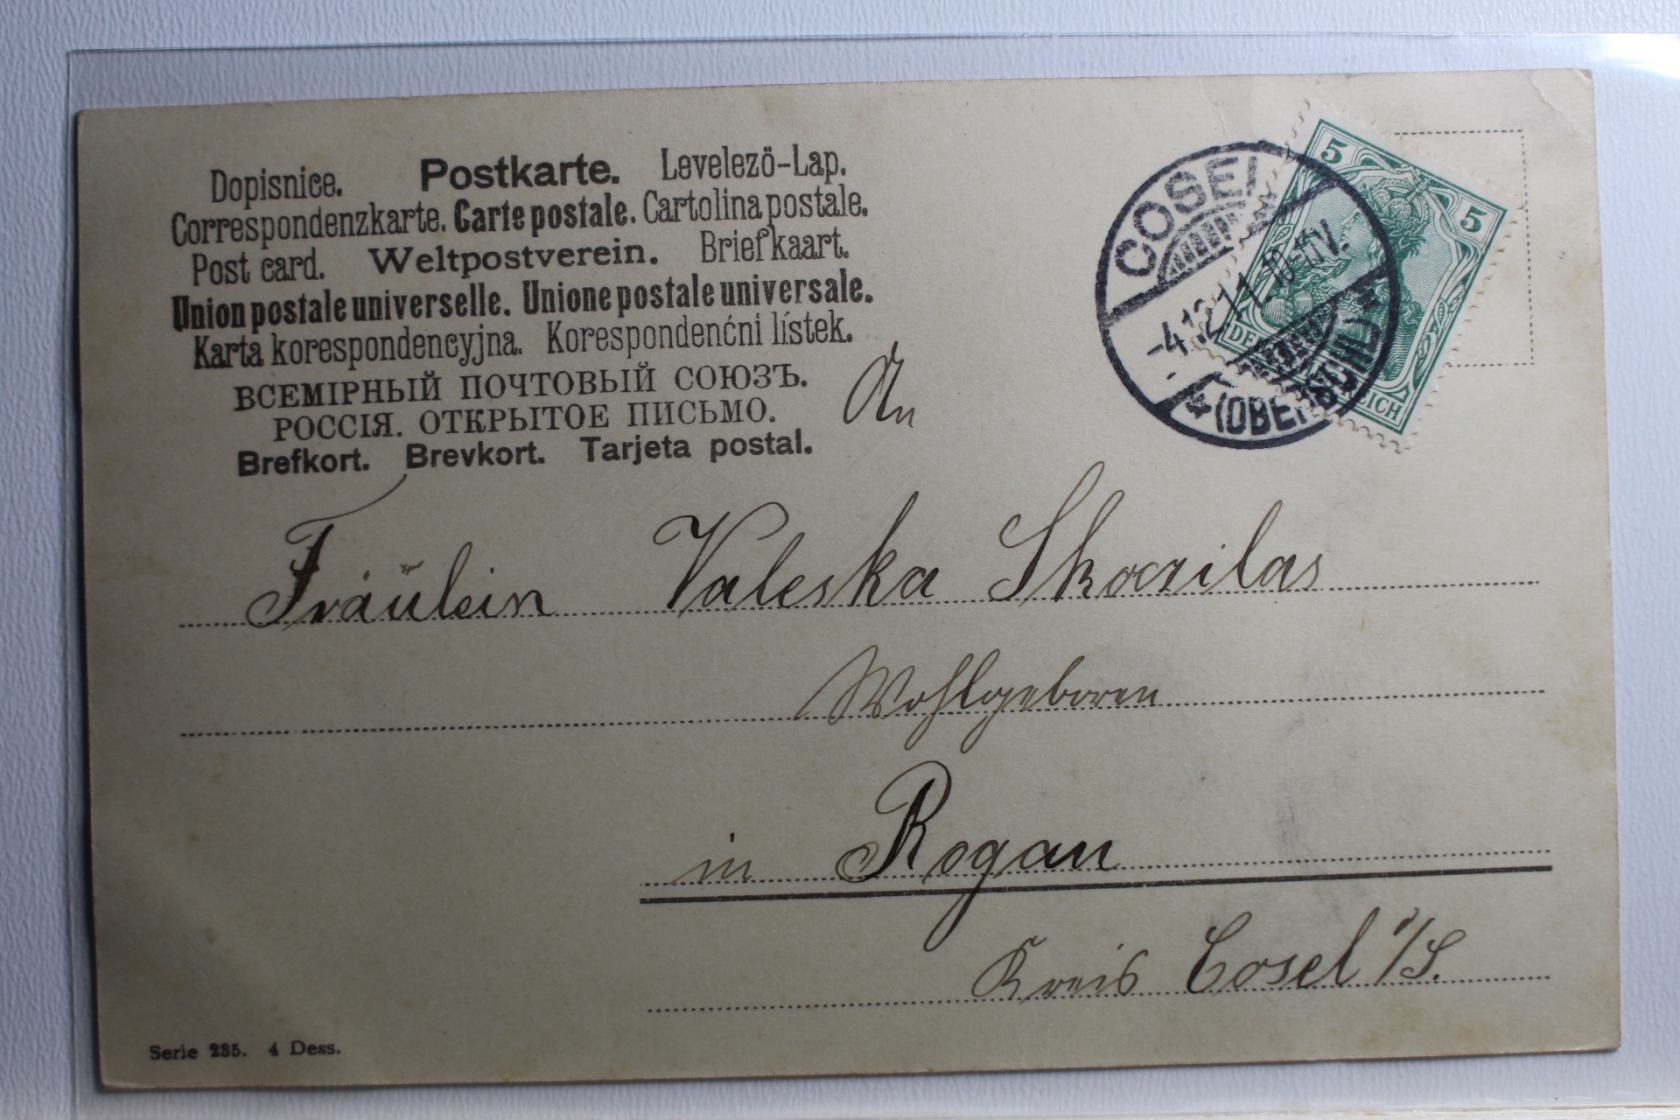 Dopisnice. Postkarte. Levelező-Lap.
Correspondenzkarte. Carte postale. Cartolina postale.
Post card. Weltpostverein. Briefkaart.
Union postale universelle. Unione postale universale.
Karta korespondencyjna. Korespondenćni lístek.
ВСЕМІРНЫЙ ПОЧТОВЫЙ СОЮЗЪ.
РОССІЯ. ОТКРЫТОЕ ПИСЬМО.
Brefkort. Brevkort. Tarjeta postal.
COSEL
-4.12.11. 10-11V.
5 5
An
Fräulein Valeska Skoczilas
Wohlgeboren
in Rogau
Kreis Cosel i/S.
Serie 235. 4 Dess.